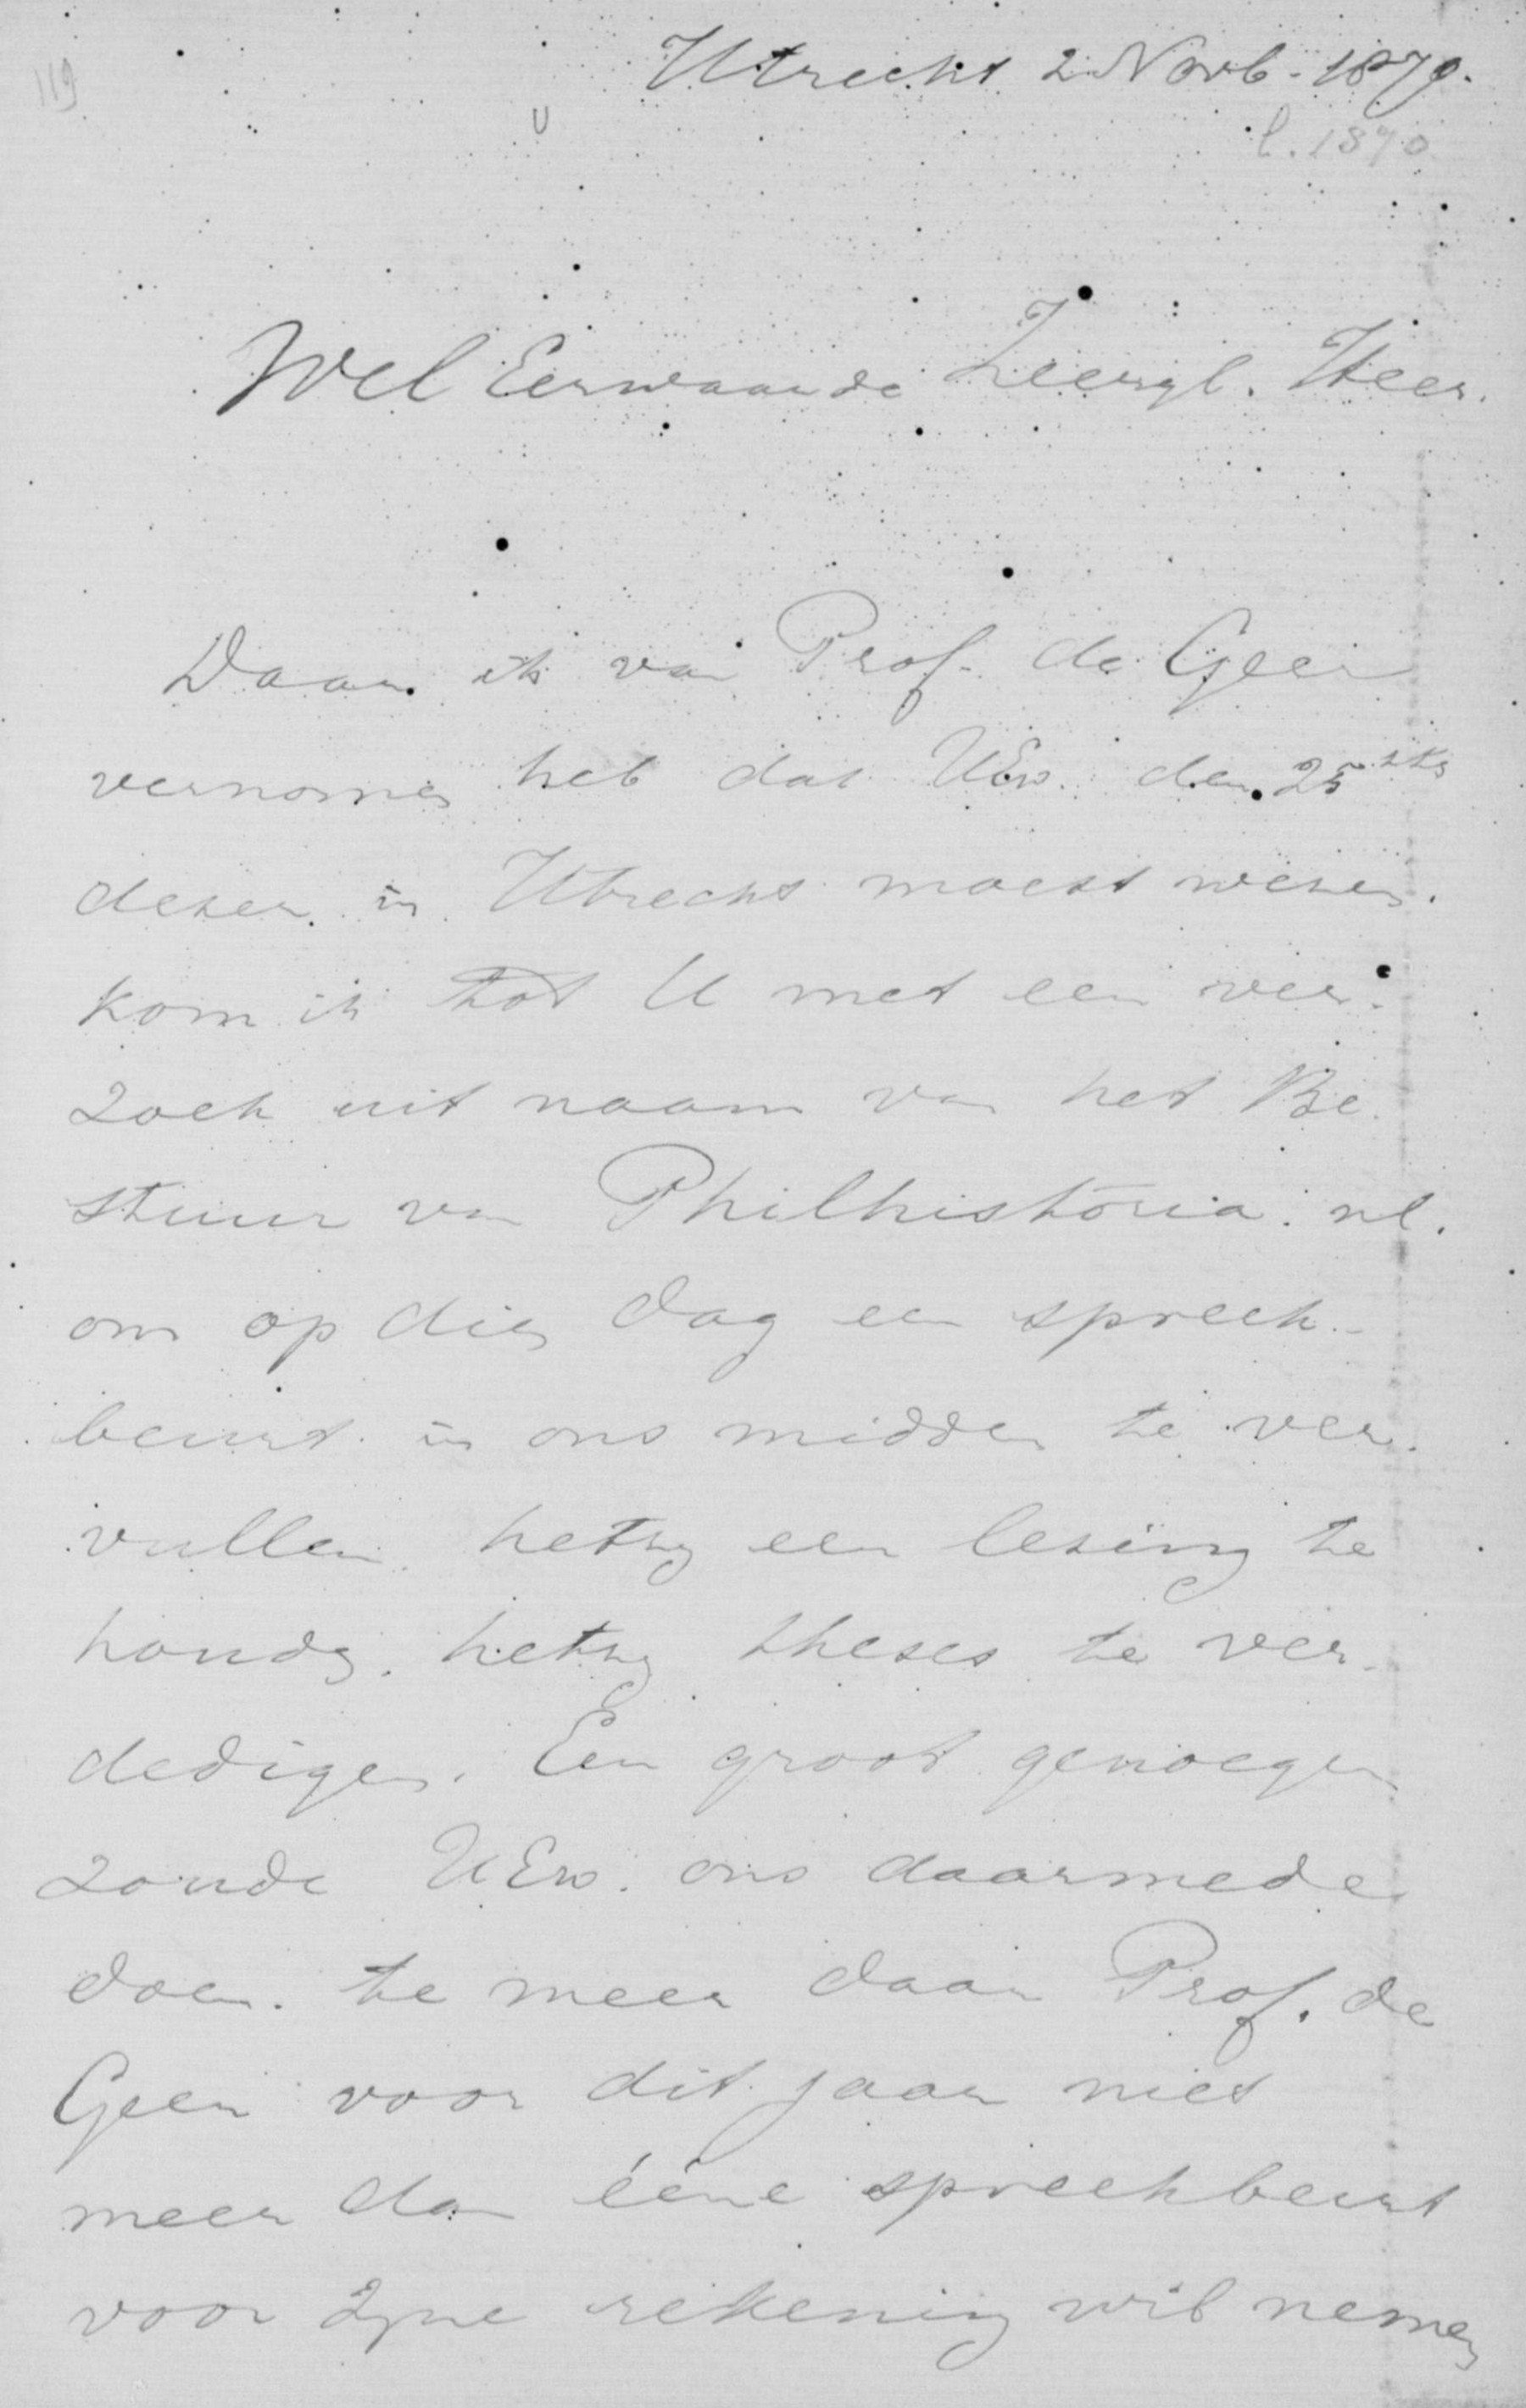 119
Utrecht 2 Novb. 1879.
l. 1870
Wel Eerwaarde Zeergl. Heer.
Daar ik van Prof. de Geer
vernomen heb dat UEw. den 25sten
dezer in Utrecht moest wezen.
kom ik tot U met een ver-
zoek uit naam van het Be-
stuur van Philhistoria. nl.
om op dien dag een spreek-
beurt in ons midden te ver-
vullen hetzy een lezing te
houden. hetzy theses te ver-
dedigen. Een groot genoegen
zoude UEw. ons daarmede
doen. te meer daar Prof. de
Geer voor dit jaar niet
meer dan ééne spreekbeurt
voor zyne rekening wil nemen